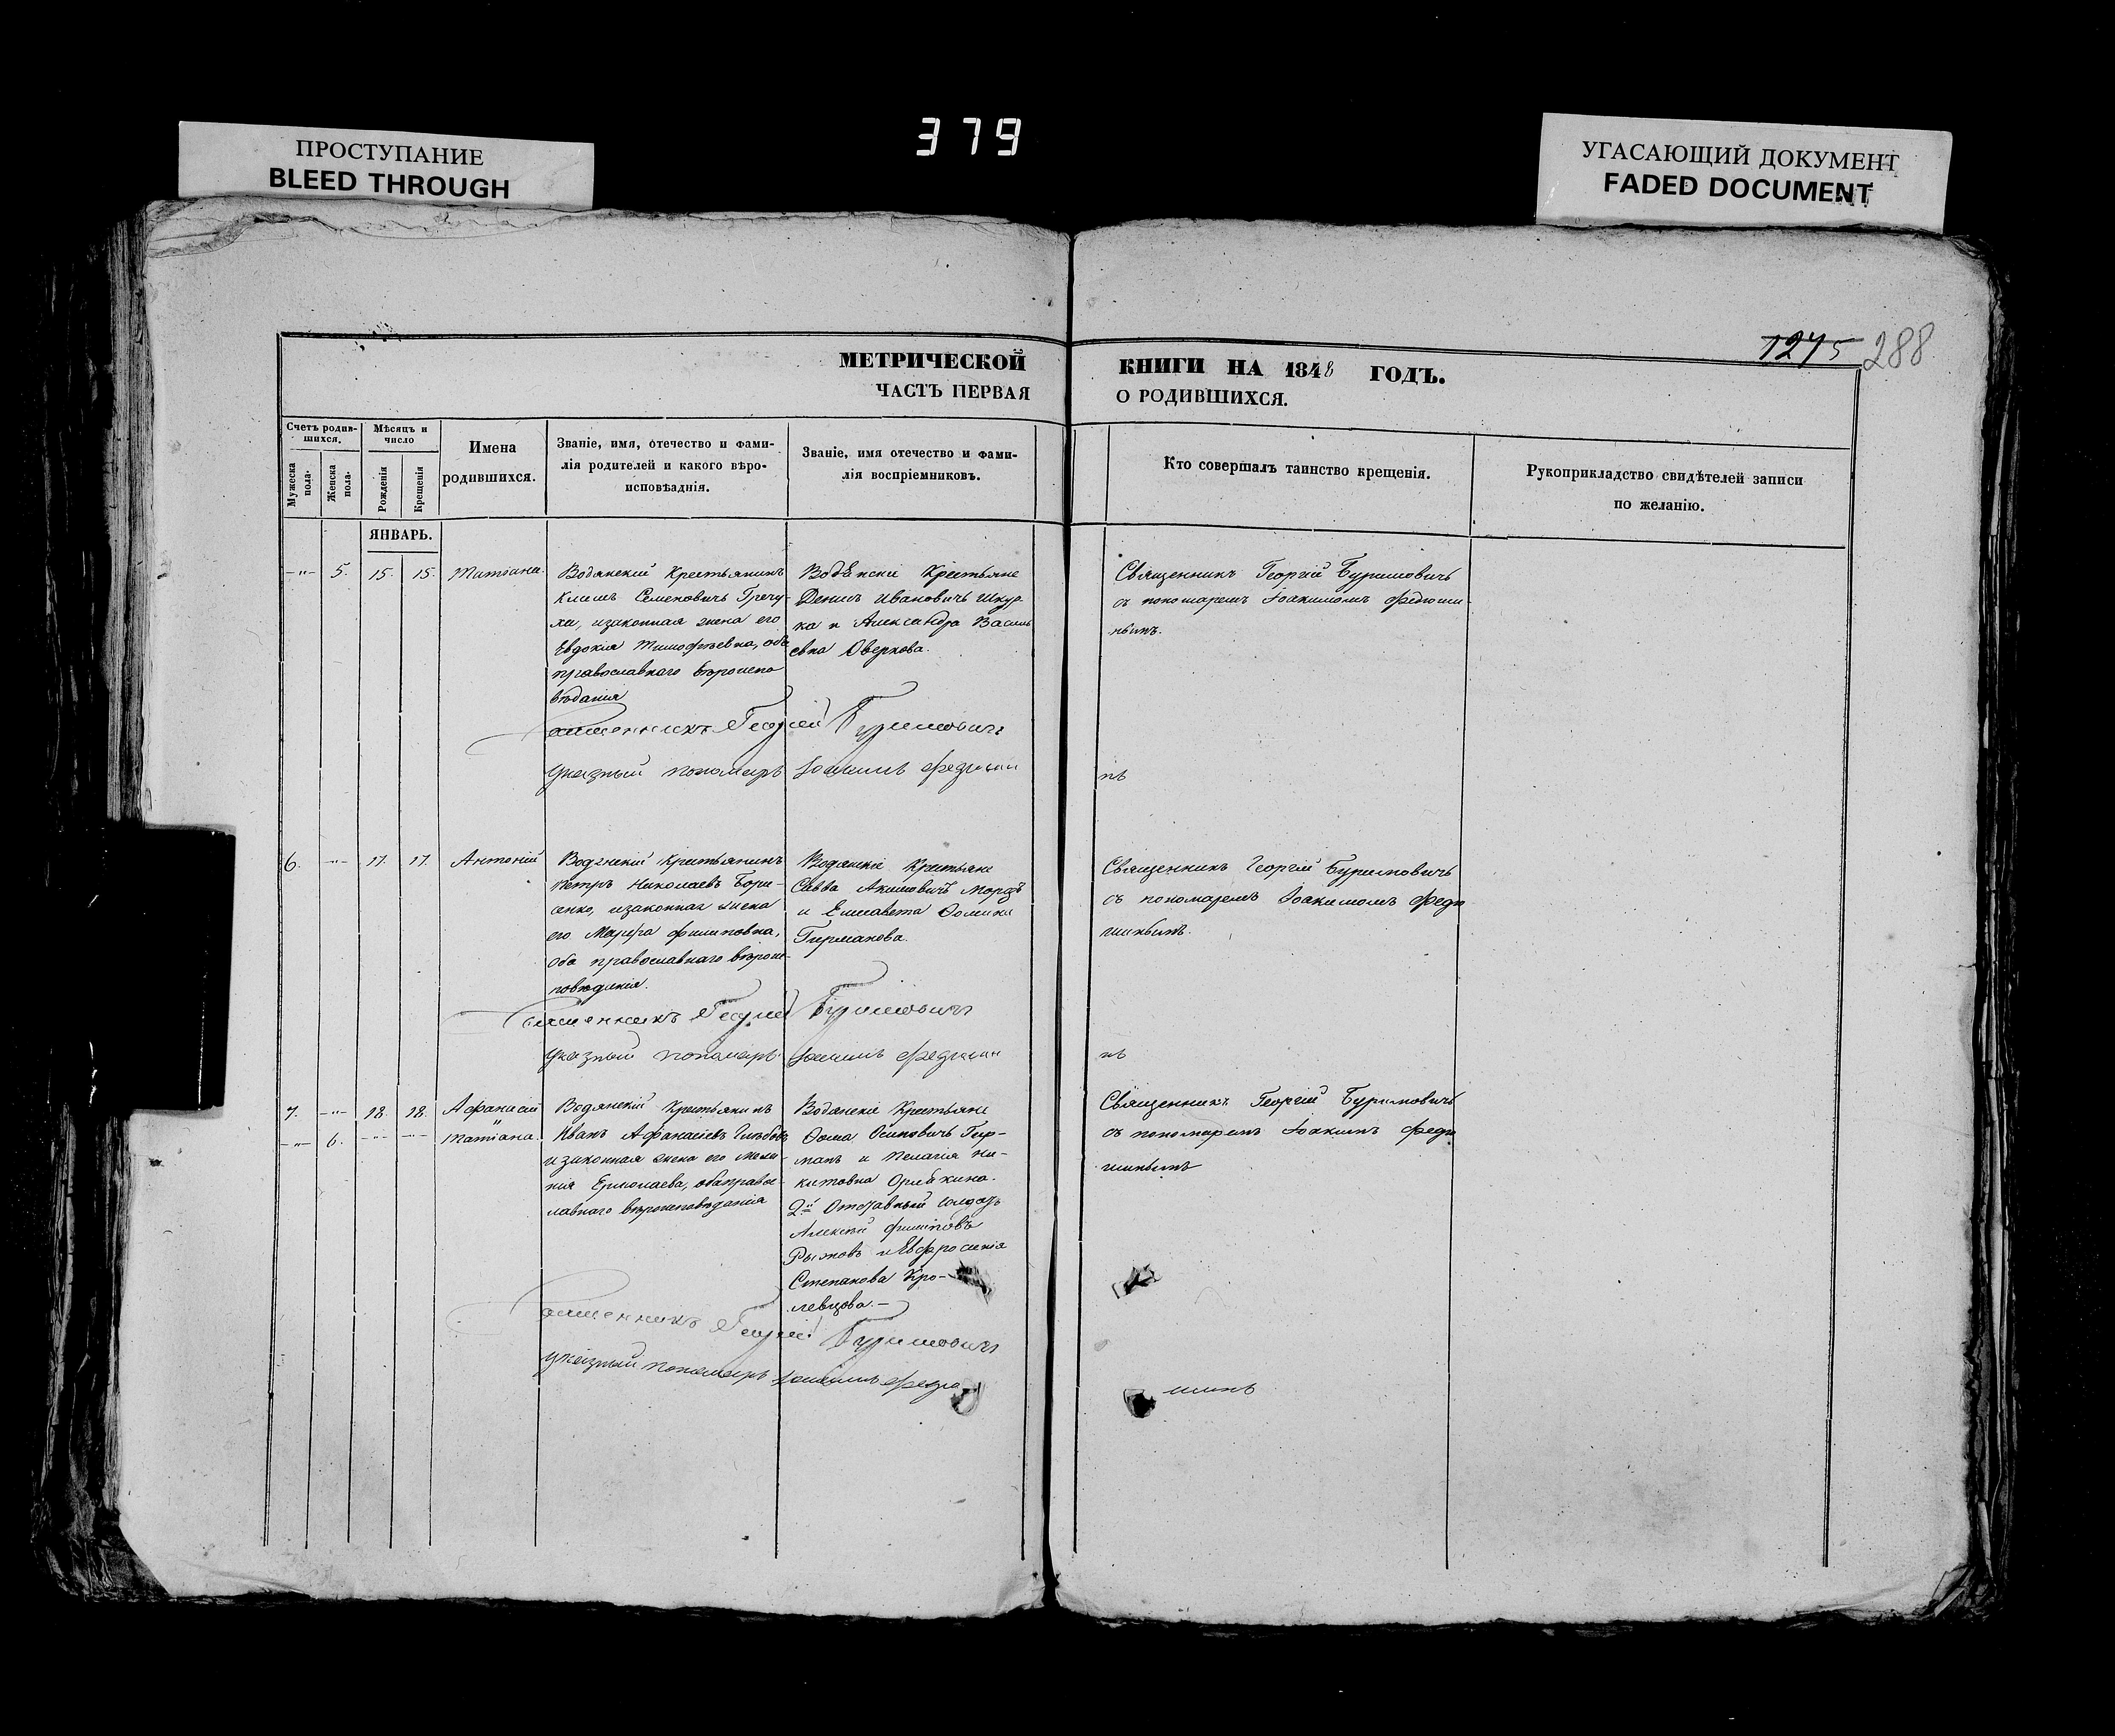 379
ПРОСТУПАНИЕ
BLEED THROUGH
УГАСАЮЩИЙ ДОКУМЕНТ
FADED DOCUMENT
1275 288
МЕТРИЧЕСКОЙ КНИГИ НА 1848 ГОДЪ.
ЧАСТЬ ПЕРВАЯ О РОДИВШИХСЯ.
Счетъ родив-
шихся.
Мужеска пола.
Женска пола.
Мѣсяцъ и
число
Рожденія
Крещенія
Имена
родившихся.
Званіе, имя, отечество и фами-
лія родителей и какого вѣро-
исповѣаднія.
Званіе, имя отечество и фами-
лія воспріемниковъ.
Кто совершалъ таинство крещенія.
Рукоприкладство свидѣтелей записи
по желанію.
ЯНВАРЬ.
-"- 5. 15. 15. Татіана.
Водянскій Крестьянинъ
Климъ Семеновичъ Гречу-
ха, изаконная жена его
Евдокія Тимофѣевна, оба
православнаго вѣроиспо
вѣданія
Водянскіе Крестьяне
Денисъ Ивановичъ Шкур
ка и Александра Василь
евна Оверкова.
Священникъ Георгій Буримовичь
съ пономаремъ Іоакимомъ Федюши-
нымъ.
Священникъ Георгій Буримовичъ
Указный пономарь Іоакимъ Федюши
нъ
6. -"- 17. 17. Антоній
Водянскій Крестьянинъ
Петръ Николаевъ Бори-
сенко, изаконная жена
его Марфа Филиповна,
оба православнаго вѣроис-
повѣданія.
Водянскіе Крестьяне
Савва Акимовичъ Морозъ
и Елисавета Ѳомина
Гирманова.
Священникъ Георгій Буримовичь
съ пономаремъ Іоакимомъ Федю
шинымъ.
Священникъ Георгій Буримовичъ
Указный пономарь Іоакимъ Федюши
нъ
7. -"- 18. 18. Афанасій
-"- 6. -"- -"- Татіана.
Водянскій Крестьянинъ
Иванъ Афанасіевъ Глѣбовъ
изаконная жена его Мела-
нія Ермолаева, оба правос-
лавнаго вѣроисповѣданія
Водянскіе Крестьяне
Ѳома Осиповичъ Гир-
манъ и Пелагія Ни-
китовна Орлѣкина.
2й Отставный Солдатъ
Алексѣй Филиповъ
Рыжовъ и Евфросинія
Степанова Кро-
левцова.-
Священникъ Георгій Буримовичь
съ пономаремъ Іоакимъ Федю
шинымъ
Священникъ Георгій Буримовичъ
указный пономарь Іоакимъ Федю
шинъ